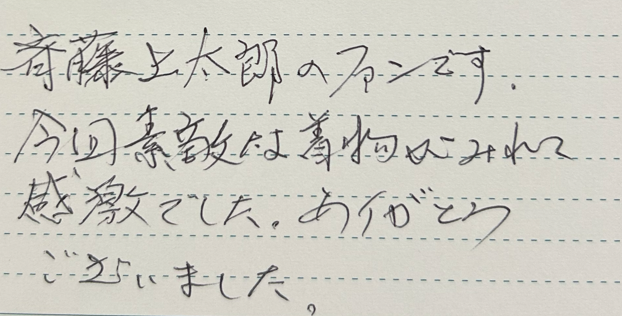 斉藤上太郎のファンです.
今回素敵な着物がみれて
感激でした。ありがとう
ございました。